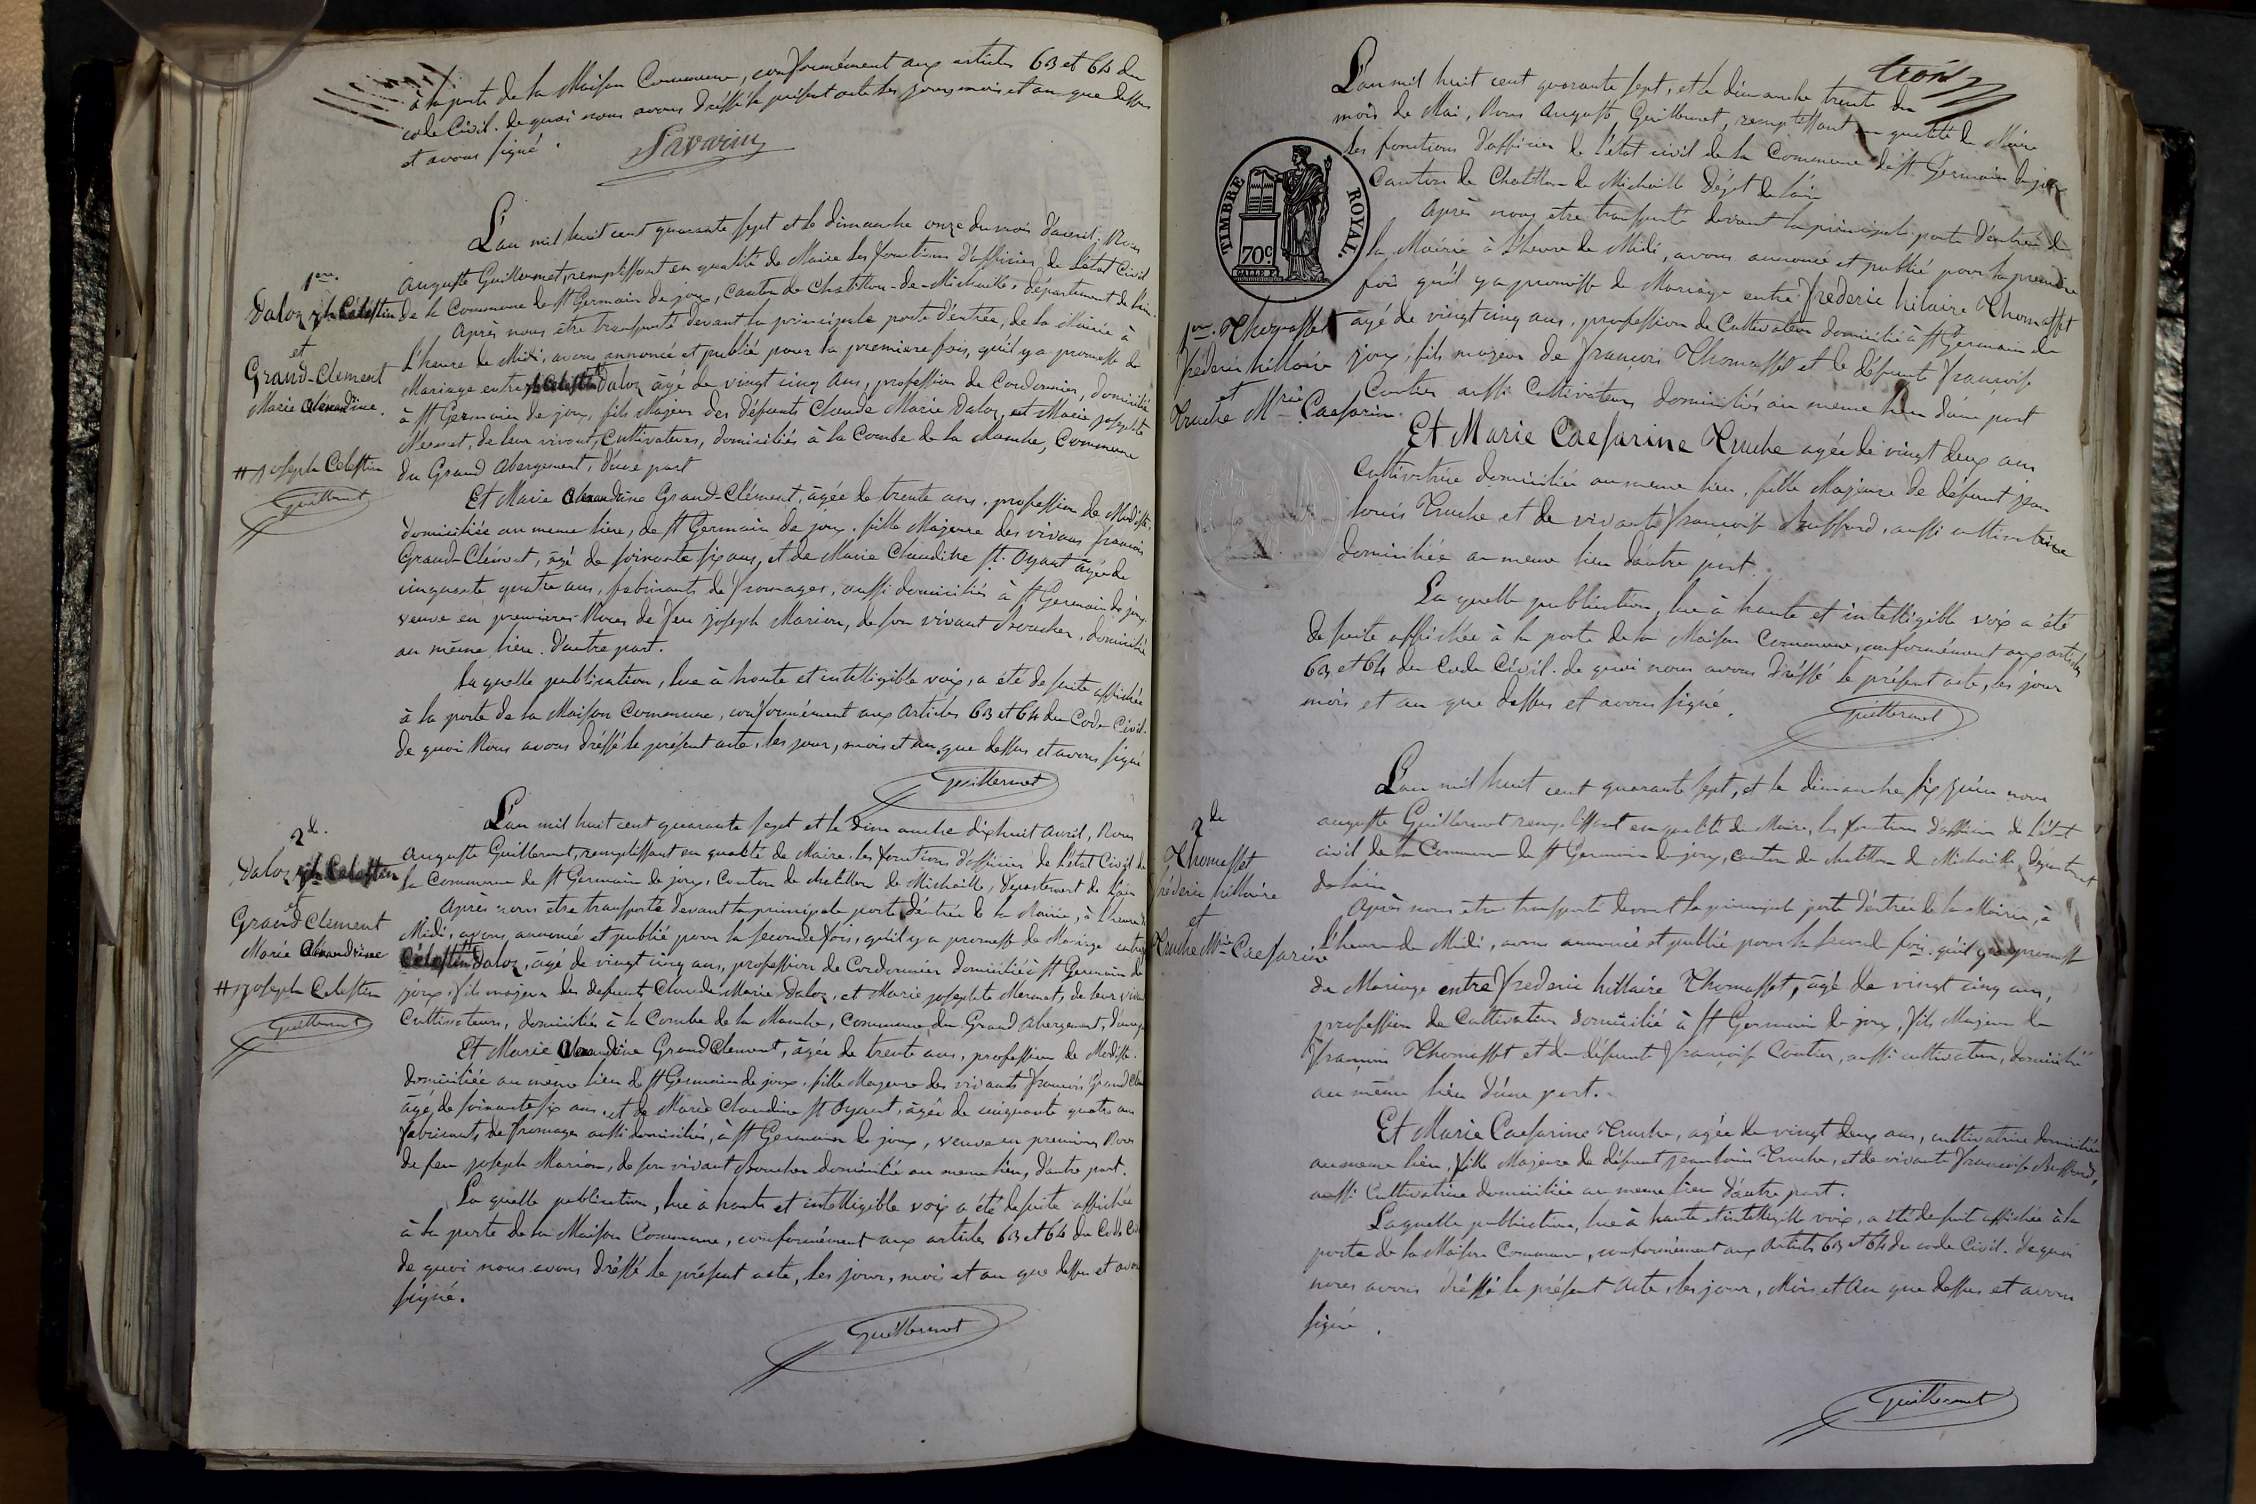 à la porte de la Maison Commune, conformément aux articles 63 et 64 du
code Civil. de quoi nous avons dréssé le présent acte les jour, mois et an que dessus
et avons signé.
Savarin
L'an mil huit cent quarante sept et le dimanche onze du mois d'avril, Nous
Auguste Guillermet, remplissant en qualité de Maire les fonctions d'officier de l'état Civil
de la Commune de St Germain de joux, canton de Chatillon-de-Michaille, département de l'ain.
Après nous être transporté devant la principale porte d'entrée, de la Mairie à
l'heure de Midi, avons annoncé et publié pour la premiere fois, qu'il y a promesse de
Mariage entre Daloz âgé de vingt cinq Ans, profession de Cordonnier, domicilié
à St Germain de joux, fils Majeur des défunts Claude Marie Daloz, et Marie josephte
Mermet, de leur vivant, Cultivateurs, domiciliés à la Combe de la Manche, Commune
du Grand Abergement, d'une part
Et Marie Alexandrine Grand-Clément, âgée de trente ans, profession de Modiste.
domiciliée au meme lieu, de St Germain de joux, fille Majeure des vivans françois
Grand-Clément, âgé de soixante six ans, et de Marie Claudine St. Oyant âgée de
cinquante quatre ans, fabricants de fromages, aussi domiciliés à St Germain de joux
veuve en premieres Noces de feu joseph Marion, de son vivant Boucher, domicilié
au même lieu. d'autre part.
La quelle publication, lue à haute et intelligible voix, a été de suite affichée
à la porte de la Maison Commune, conformément aux Articles 63 et 64 du Code Civil.
de quoi Nous avons dréssé le présent acte, les jour, mois et an que dessus et avons signé
Guillermet
1ere.
Daloz jh Célestin
et
Grand-Clement
Marie Alexandrine.
# joseph Celestin
Guillermet
L'an mil huit cent quarante sept et le dimanche dix huit Avril, Nous
Auguste Guillermet, remplissant en qualité de Maire les fonctions d'officier de l'état Civil de
la Commune de St Germain de joux, Canton de chatillon de Michaille, département de l'ain
Après nous être transporté devant la principale porte d'entrée de la Mairie, à l'heure de
Midi, avons annoncé et publié pour la seconde fois, qu'il y a promesse de Mariage entre
Célestin Daloz, âgé de vingt cinq ans, profession de Cordonnier domicilié à St Germain de
joux, fils majeur des defunts Claude Marie Daloz, et Marie josephte Mermet, de leur vivant
Cultivateurs, domiciliés à la Combe de la Manche, Commune du Grand Abergement, d'une part
Et Marie Alexandrine Grand Clement, âgée de trente ans, profession de Modiste.
domiciliée au même lieu de St Germain de joux, fille Majeure des vivants françois Grand Clem
âgé, de soixante six ans, et de Marie Claudine St Oyant, âgée de cinquante quatre ans
fabricants, de fromages aussi domiciliés, à St Germain de joux, veuve en premieres Noces
de feu joseph Marion, de son vivant Boucher domicilié au meme lieu, d'autre part.
La quelle publication, lue à haute et intelligible voix a été de suite affichée
à la porte de la Maison Commune, conformément aux articles 63 et 64 du Code Civ
de quoi nous avons dréssé le présent acte, les jour, mois et an que dessus et avons
signé.
Guillermet
2de.
Daloz jh Celestin
et
Grand Clement
Marie Alexandrine
# joseph Celestin
Guillermet
trois
L'an mil huit cent quarante sept, et le dimanche trente du
mois de Mai, Nous Auguste Guillermet, remplissant en qualité de Maire
les fonctions d'officier de l'état civil de la Commune de St. Germain de joux
Canton de Chatillon de Michaille dépt de l'ain
Après nous etre transporté devant la principale porte d'entrée de
la Mairie à l'heure de Midi, avons annoncé et publié pour la premiere
fois qu'il y a promesse de Mariage entre frederic hilaire Thomasset
agé de vingt cinq ans, profession de Cultivateur domicilié à St Germain de
joux, fils majeur de françois Thomasset et de défunte françoise
Coutier aussi Cultivateurs domiciliés au meme lieu d'une part
Et Marie Caesarine Truche agée de vingt deux ans
Cultivatrice domiciliée au meme lieu, fille Majeure de défunt jean
louis Truche et de vivante françoise Buffard, aussi cultivatrice
domiciliée au meme lieu d'autre part.
La quelle publication, lue à haute et intelligible voix a été
de suite affichée à la porte de la Maison Commune, conformément aux articles
63 et 64 du Code Civil. de quoi nous avons dréssé le présent acte, les jour
mois et an que dessus et avons signé.
Guillermet
TIMBRE ROYAL.
70c
1ere. Thomasset
frederic hillaire
et
Truche Mrie Caesarine
L'an mil huit cent quarante sept, et le dimanche six juin nous
auguste Guillermet remplissant en qualité de Maire, les fonctions d'officier de l'état
civil de la Commune de St Germain de joux, canton de chatillon de Michaille, départment
de l'ain
Après nous être transporté devant la principale porte d'entrée de la Mairie, à
l'heure de Midi, avons annoncé et publié pour la seconde fois. qu'il y a promesse
de Mariage entre frederic hillaire Thomasset, âgé de vingt cinq ans,
profession de Cultivateur domicilié à St Germain de joux, fils Majeur de
françois Thomasset et de défunte françoise Coutier, aussi cultivateurs, domicilié
au même lieu d'une part.
Et Marie Caesarine Truche, agée de vingt deux ans, cultivatrice domiciliée
au meme lieu, fille Majeure de défunt jean louis Truche, et de vivante françoise Buffard,
aussi Cultivatrice domiciliée au meme lieu d'autre part.
Laquelle publication, lue à haute et intelligible voix, a été de suite affichée à la
porte de la Maison Commune, conformément aux Articles 63 et 64 du code Civil. de quoi
nous avons dréssé le présent Acte, les jour, Mois et An que dessus et avons
signé.
Guillermet
2de
Thomasset
fréderic hillaire
et
Truche Mrie Caesarine